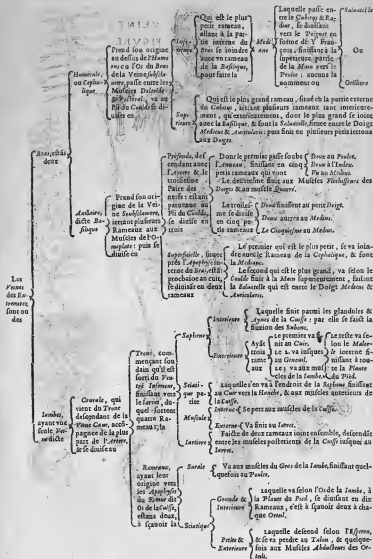 Les
Veines
des Ex-
tremitez,
sont ou
des
Bras, est là
deux
Humerale,
ou Cephale-
lique
Prend son origine
au dessus de l'Hume-
rus ou l'Os du Bras
de la Veine subcla-
viere, passe entre les
Muscles Deltoide
& Pectoral, va au
Pli du Coulde se di-
visée en
Qui est le plus
petit rameau,
allant à la par-
tie interne du
Bras se joindre
auec vn rameau
de la Basilique,
pour faire la
Laquelle passe en-
tre le Cubitus & Ra-
dius, se diuisant
vers le Poignet en
forme d'Y Fran-
çois, finissant à la
superieure partie
de la Main vers le
Poulce : aucuns la
nomment ou
Saluatelle
Ou
Qui est le plus grand rameau, situé en la partie externe
du Cubitus, iettant plusieurs rameaux tant interieure-
ment, qu'exterieurement, dont le plus grand se ioint
auec la Basilique, & font la Saluatelle, située entre le Doigt
Medius & Auriculaire: puis finit en plusieurs petis iettons
aux Doigts.
Axillaire,
dicte Ba-
silique
Prend son ori-
gine de la Vei-
ne Sousclauiere,
iettant plusieurs
Rameaux aux
Muscles de l'O-
moplate : puis se
diuise en
Profonde, des-
cendant auec
l'Artere & le
troisiesme
Paire des
nerfs : estant
paruenue au
Pli du Coulde,
se diuise en
trois
Dont le premier passe soubs
l'Anneau, finissant en cinq
petis rameaux qui vont
Deux au Poulce.
Deux à l'Index.
Vn au Medius.
Le deuxiesme finit aux Muscles Flechisseurs des
Doigts & au muscle Quarré.
Le troisies-
me se diuise
en cinq pe-
tis rameaux
Deux finissent au petit Doigt.
Deux autres au Medius.
Le Cinquiesme au Medius.
Superficielle, située
prés l'Apophyse in-
terne du Bras, estāt
prochaine au cuir,
se diuisāt en deux
rameaux
Le premier qui est le plus petit, se va ioin-
dre auec le Rameau de la Cephalique, & font
la Mediane.
Le second qui est le plus grand, va selon le
Coulde finir à la Main superieurement, faisant
la Saluatelle qui est entre le Doigt Medius &
Auriculaire.
Iambes,
ayant vne
seule Vei-
ne dicte
Crurale, qui
vient du Tronc
descendant de la
Veine Caue, accō-
pagnée de la plus
part de l'Artere,
& se diuise au
Tronc, com-
mençant sou-
dain qu'il est
sorti du Ven-
tre Inferieur,
finissant vers
le Iarret, du-
quel sortent
quatre Ra-
meaux; la
Saphene
Interieure
Laquelle finit parmi les glandules &
Aynes de la Cuisse : par elle se faict la
fluxion des Bubons.
Exterieure
Ayāt
trois
rame
aux
Le premier va se
finit au Cuir.
Le 2. va iusques
au Genouil.
Le 3 va aux mus-
cles de la Iambe.
Le reste va se-
lon le Maleo-
le interne fi-
nissant à tou-
te la Plante
du Pied.
Sciati-
que pe-
tite
Laquelle s'en va à l'endroit de la Saphene finissant
au Cuir vers la Hanche, & aux muscles anterieurs de
la Cuisse.
Muscule
Interne
Se pert aux muscles de la Cuisse.
Externe
Va finir au Iarret.
Iartiere
Faicte de deux rameaux ioint ensemble, descendāt
entre les muscles posterieurs de la Cuisse iusques au
Iarret.
Rameaux,
ayant leur
origine vers
les Apophyses
du Femur dit
Os de la Cuisse,
estans deux,
à sçauoir la
Surale
Va aux muscles du Gras de la Iambe, finissant quel-
quefois au Poulce.
Sciatique
Grande &
Interieure
Laquelle va selon l'Os de la Iambe, à
la Plante du Pied, se diuisant en dix
Rameaux, c'est à sçauoir deux à cha-
que Orteil.
Petite &
Exterieure
Laquelle descend selon l'Esperon,
& se va perdre au Talon, & quelque-
fois aux Muscles Abducteurs des Or-
teils.